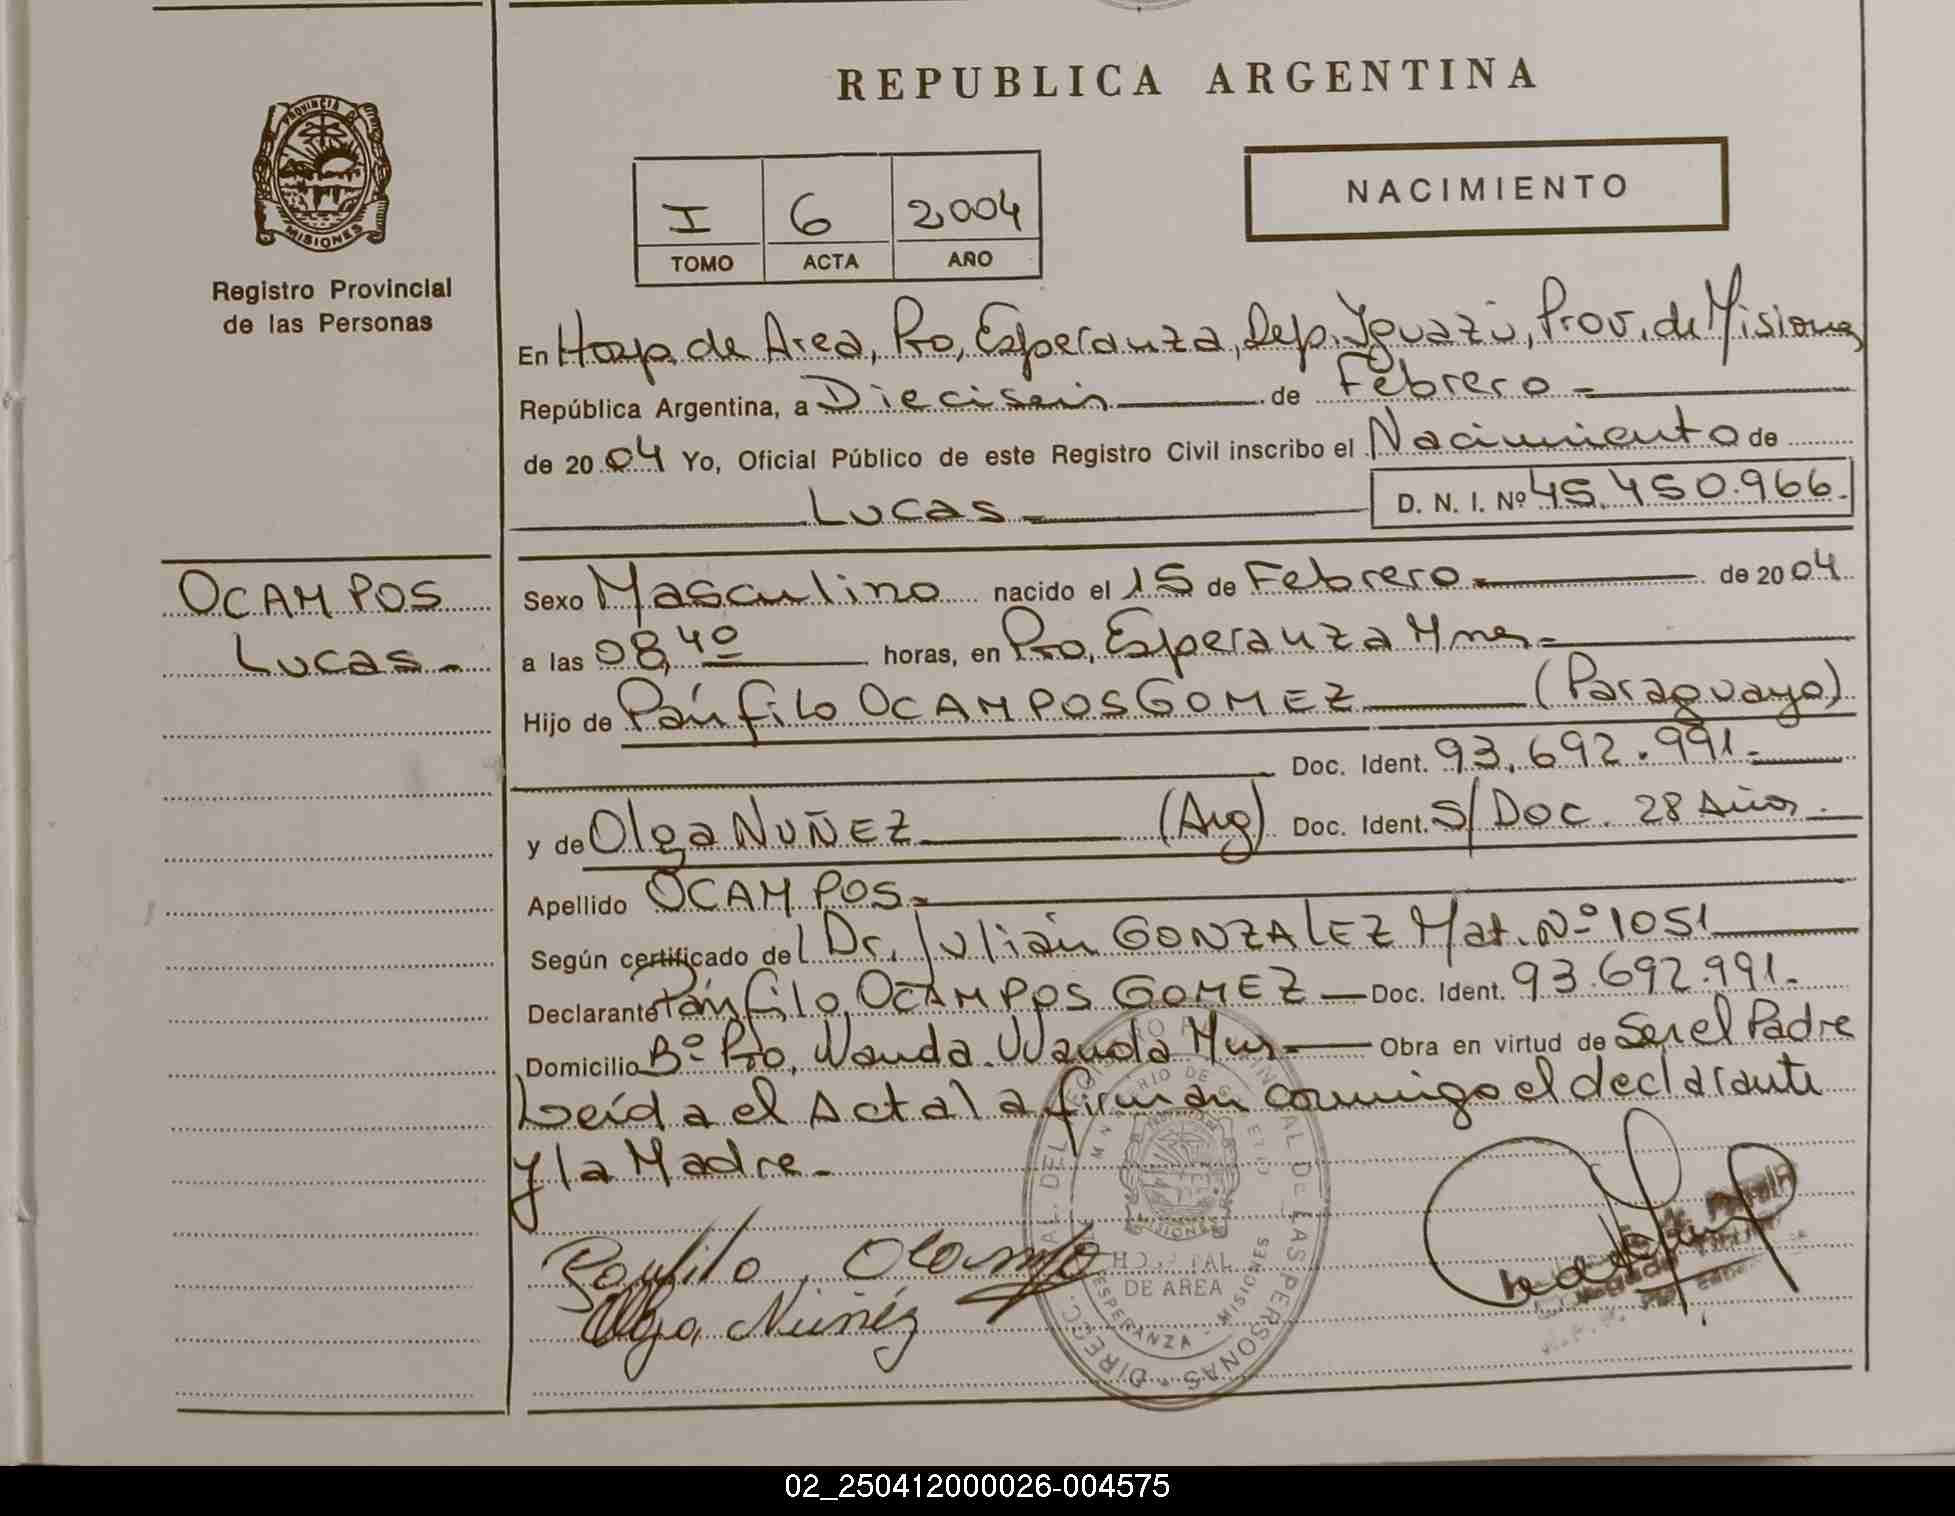 REPUBLICA ARGENTINA
PROVINCIA DE
MISIONES
Registro Provincial
de las Personas
NACIMIENTO
I 6 2004
TOMO ACTA AÑO
En Hosp. de Area, Pto, Esperanza, Dep. Iguazú, Prov. de Misiones
República Argentina, a Dieciseis de Febrero
de 2004 Yo, Oficial Público de este Registro Civil inscribo el Nacimiento de
Lucas D. N. I. Nº 45.450.966.
OCAMPOS
Lucas
Sexo Masculino nacido el 15 de Febrero de 2004
a las 08,40 horas, en Pto, Esperanza Mnes
Hijo de Pánfilo OCAMPOS GOMEZ (Paraguayo)
Doc. Ident. 93.692.991.
y de Olga NUÑEZ (Arg) Doc. Ident. S/Doc. 28 Años.
Apellido OCAMPOS
Según certificado del Dr. Julián GONZALEZ Mat. Nº 1051
Declarante Pánfilo OCAMPOS GOMEZ Doc. Ident. 93.692.991.
Domicilio Bº Pto, Wanda. Wanda Mnes Obra en virtud de Ser el Padre
Leída el Acta la firman conmigo el declarante
y la Madre.
Panfilo Ocampo
Olga Núñez
HOSPITAL
DE AREA
ESPERANZA - MISIONES
02_250412000026-004575